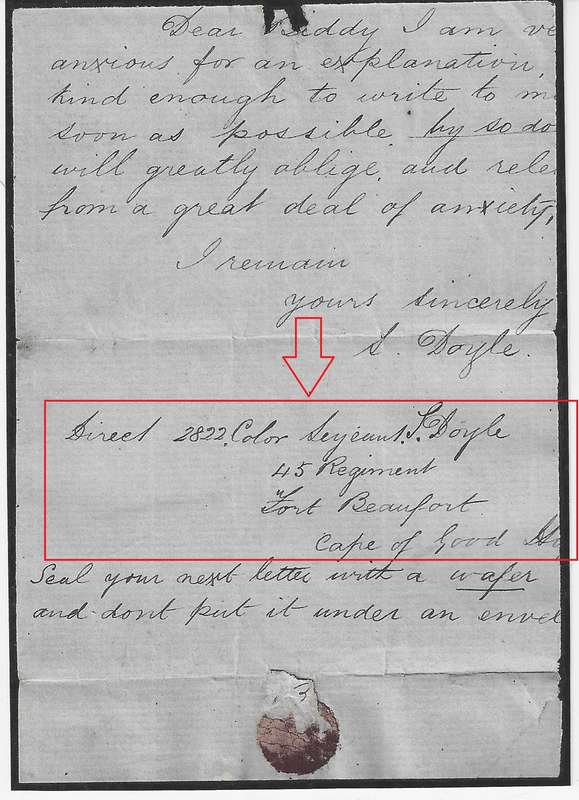 Dear Biddy I am ve
anxious for an explanation,
kind enough to write to m
soon as possible by so do
will greatly oblige, and rele
from a great deal of anxiety,
I remain
yours sincerely
S. Doyle.
Direct 2822. Color Serjeant. S. Doyle
45 Regiment
Fort Beaufort
Cape of Good Ho
Seal your next letter with a wafer
and dont put it under an envel
3